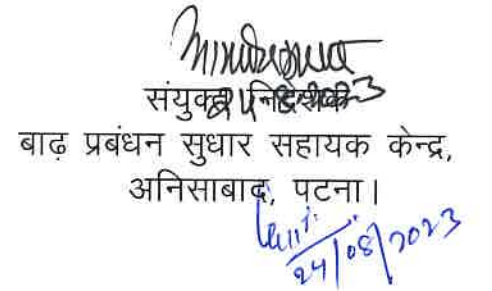 24.8.2023
संयुक्त निदेशक
बाढ़ प्रबंधन सुधार सहायक केन्द्र,
अनिसाबाद, पटना।
24/08/2023